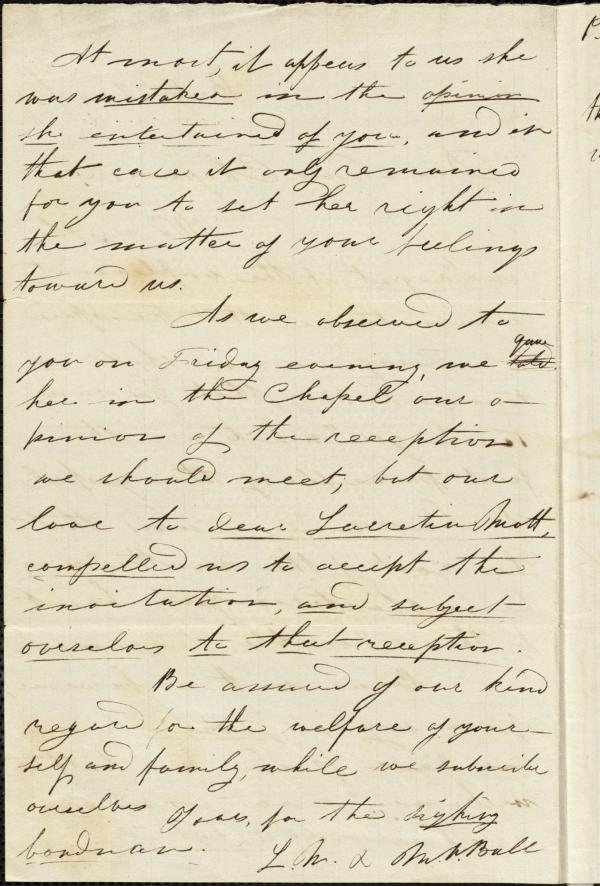 At most, it appears to us she
was mistaken in the opinion
she entertained of you, and in
that case it only remained
for you to set her right in
the matter of your feelings
toward us.
As we observed to
you on Friday evening, we gave
told
her in the Chapel our o-
pinion of the reception
we should meet, but our
love to dear Lucretia Mott,
compelled us to accept the
invitation, and subject
ourselves to that reception.
Be assured of our kind
regard for the welfare of your-
self and family, while we subscribe
ourselves Yours, for the sighing
bondman.
L. M. & M. V. Ball